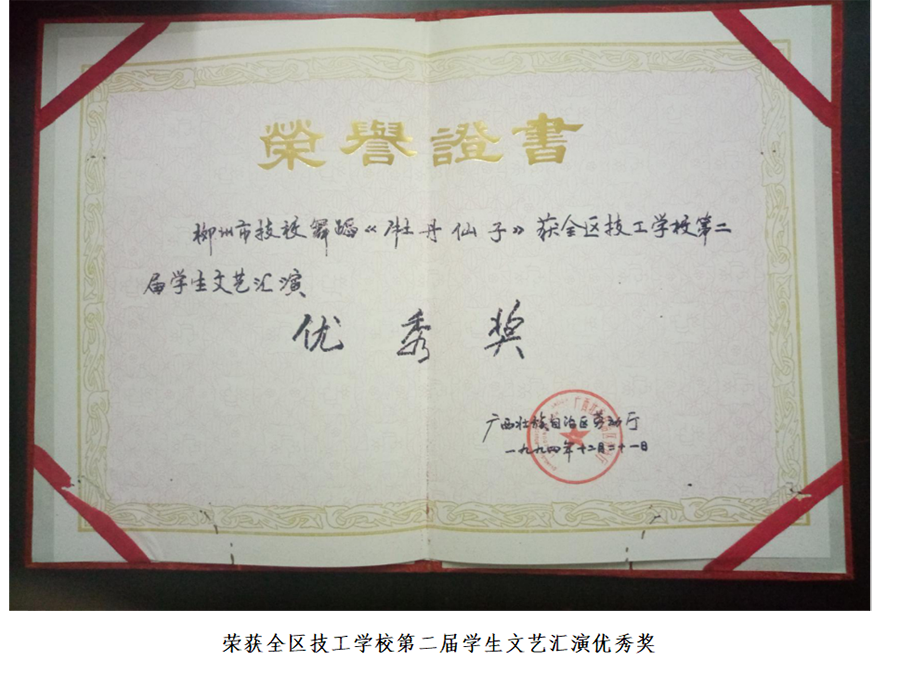 榮譽證書
柳州市技校舞蹈《牡丹仙子》获全区技工学校第二
届学生文艺汇演
优秀奖
广西壮族自治区劳动厅
一九九四年十二月二十一日
荣获全区技工学校第二届学生文艺汇演优秀奖